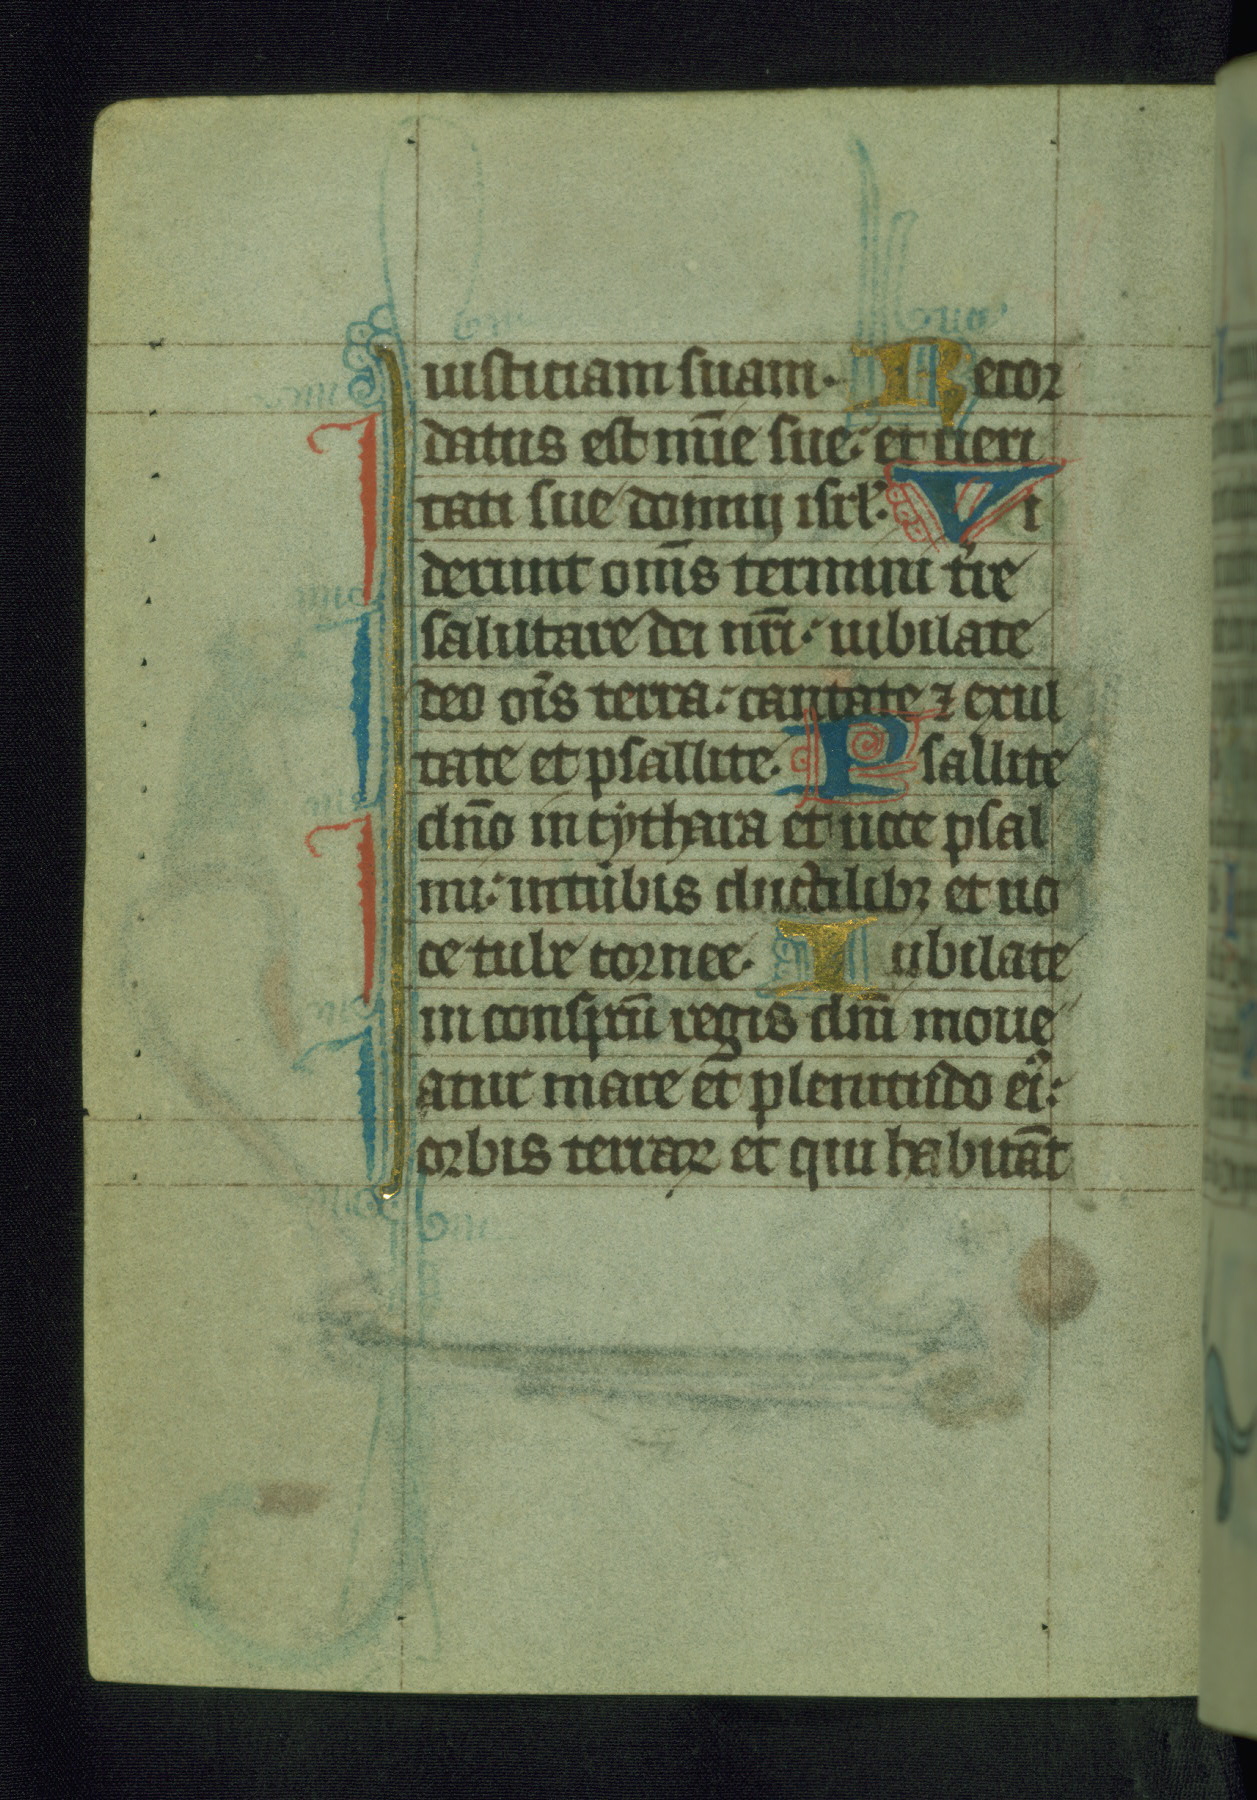 iusticiam suam. Recor
datus est mīe sue: et ueri
tati sue domuj isrl'. Vi
derunt om̄s termini t're
salutare dei nr̄i: iubilate
deo oīs terra: cantate ⁊ exul
tate et psallite. Psallite
dn̄o in cythara et uoce psal
mi: in tubis ductilibꝫ et uo
ce tube cornee. Iubilate
in conspcū regis dn̄i moue
atur mare et plenitudo ei':
orbis terraꝝ et qui habitāt